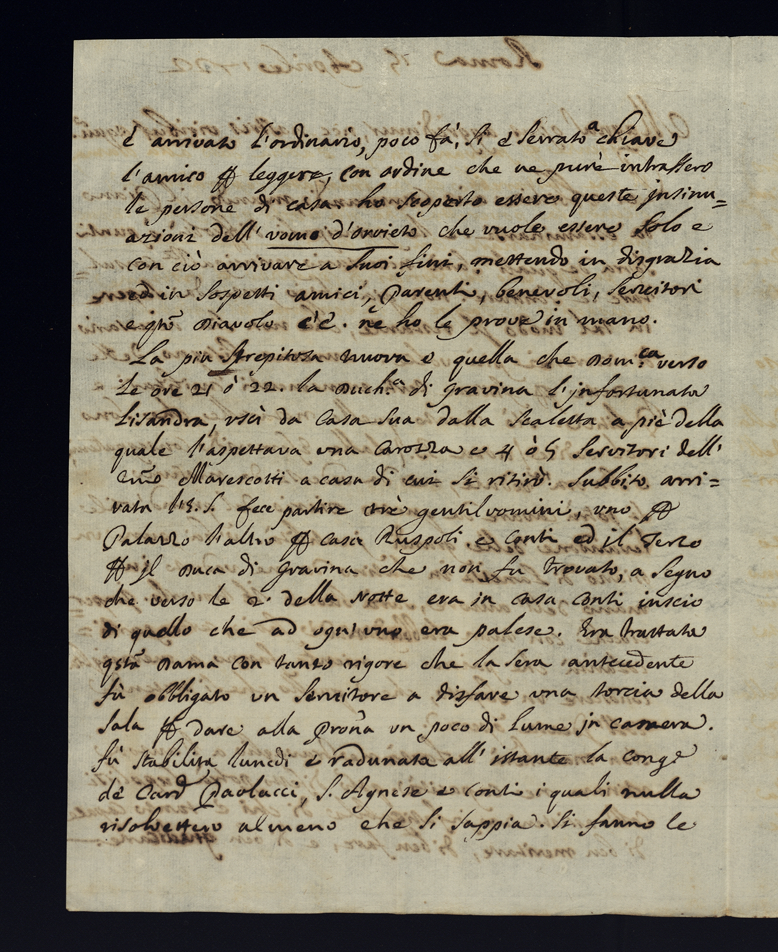 è arrivato l'ordinario, poco fà, si è serrato a chiave
l'amico p leggere, con ordine che ne pure intrassero
le persone di casa. ho scoperto essere queste insinu=
azioni dell'uomo d'orvieto che vuole essere solo e
con ciò arrivare a suoi fini, mettendo in disgrazia
ed in sospetti amici, Parenti, benevoli, servitori
e qto Diavolo c'è. ne ho le prove in mano.
La più strepitosa nuova è quella che Domca verso
le ore 21 ò 22. la Ducha di Gravina l'infortunata
Lisandra, uscì da casa sua dalla scaletta a piè della
quale l'aspettava una carozza e 4 ò 5 servitori dell'
Emo Marescotti a casa di cui si ritirò. Subbito arri=
vata l'E. S. fece partire trè gentiluomini, uno p
Palazzo l'altro p casa Ruspoli e Conti ed il Terzo
p il Duca di Gravina che non fu trovato, a segno
che verso le 2 della notte era in casa Conti inscio
di quello che ad ogni uno era palese. Era trattata
qsta Dama con tanto rigore che la sera antecedente
fù obbligato un servitore a disfare una torcia della
sala p dare alla Prona un poco di lume in camera.
fù stabilita lunedì e radunata all'istante la conge
de Card Paolucci, S. Agnese e Conti i quali nulla
risolvettero almeno che si sappia. Si fanno le